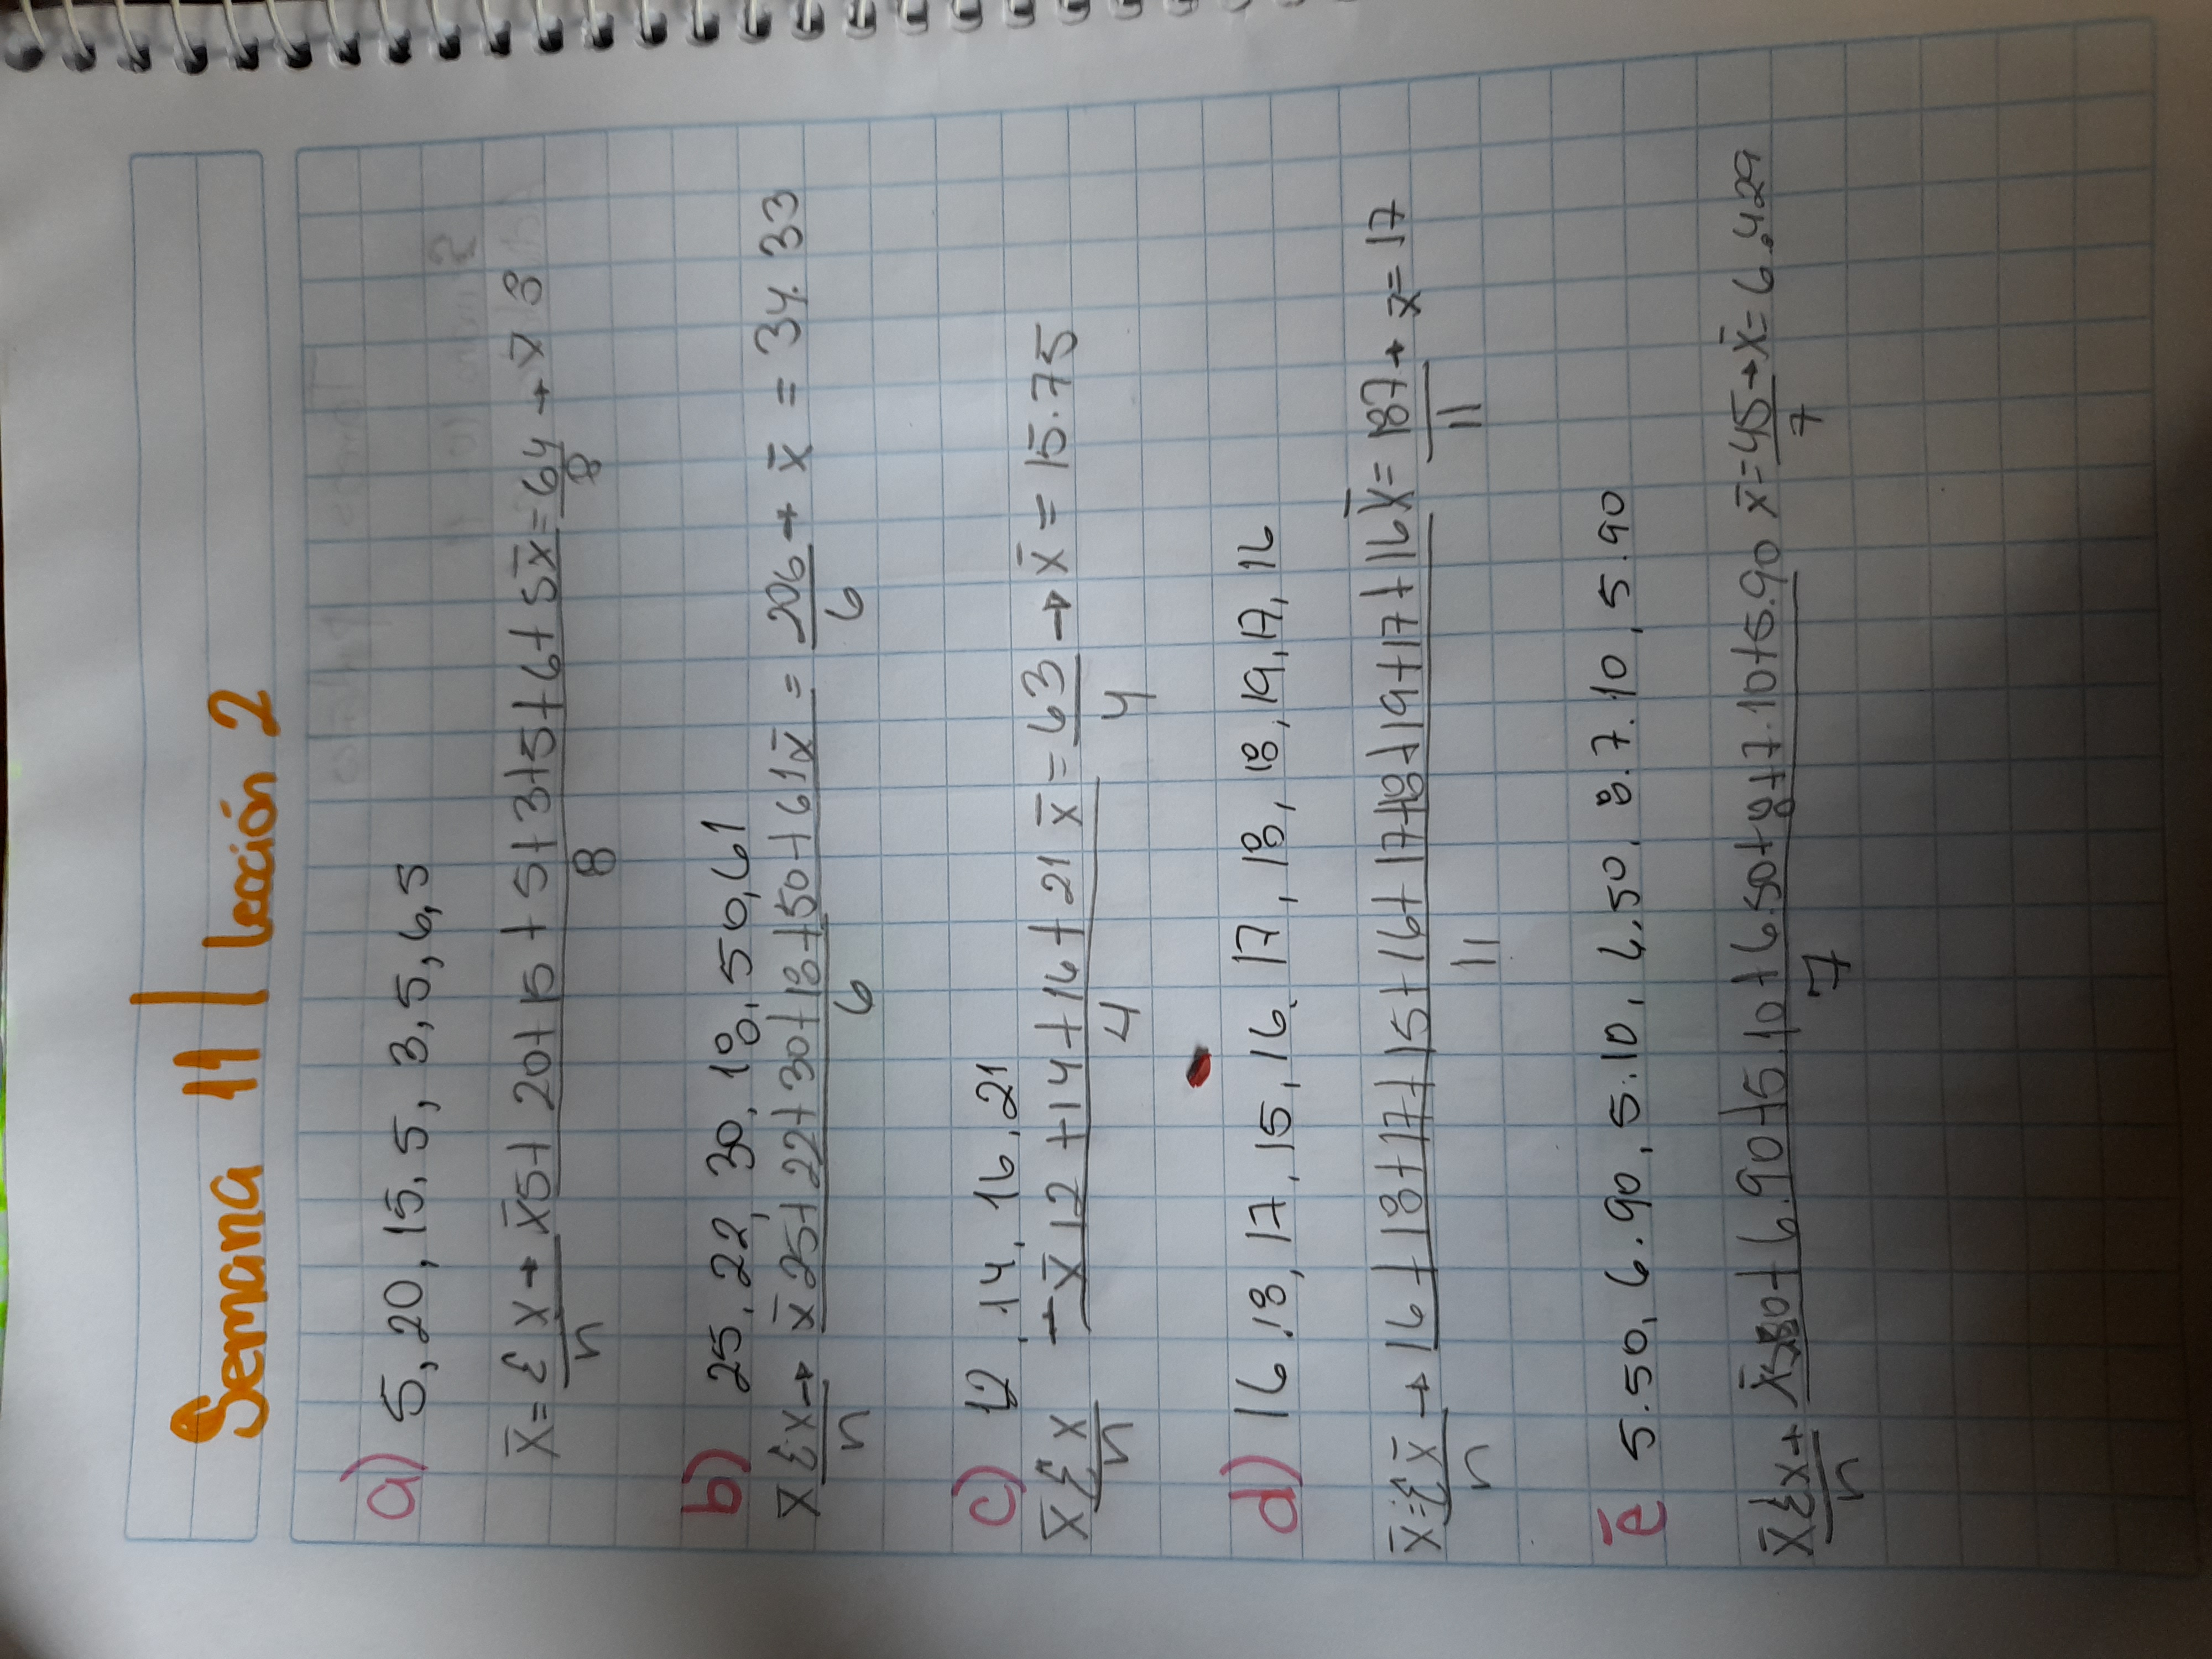 Semana 11 | lección 2
a) 5, 20, 15, 5, 3, 5, 6, 5
x̄ = Σx/n → x̄ 5+20+15+5+3+5+6+5/8 x̄ = 64/8 → x̄ 8
b) 25, 22, 30, 18, 50, 61
x̄ Σx/n → x̄ 25+22+30+18+50+61/6 x̄ = 206/6 → x̄ = 34.33
c) 12, 14, 16, 21
x̄ Σx/n → x̄ 12+14+16+21/4 x̄ = 63/4 → x̄ = 15.75
d) 16, 18, 17, 15, 16, 17, 18, 18, 19, 17, 16
x̄ = Σx̄/n → 16+18+17+15+16+17+18+19+17+16/11 x̄ = 187/11 → x̄ = 17
e 5.50, 6.90, 5.10, 6.50, 8, 7.10, 5.90
x̄ Σx/n → x̄ 5.50+6.90+5.10+6.50+8+7.10+5.90/7 x̄ = 45/7 → x̄ = 6.429